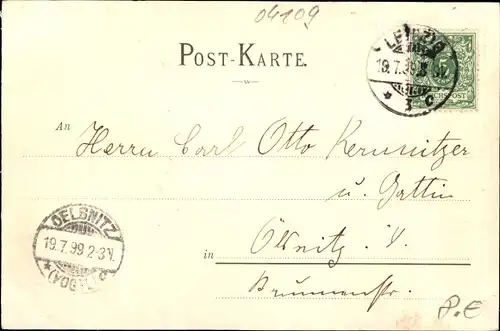 04109
POST-KARTE.
LEIPZIG
19.7.99
3 c
5
REICHSPOST
An Herrn Carl Otto Kemnitzer
u. Gattin
in Ölsnitz i. V.
Brunnenstr.
OELSNITZ
19.7.99 2-3N.
(VOGTL)
P.E